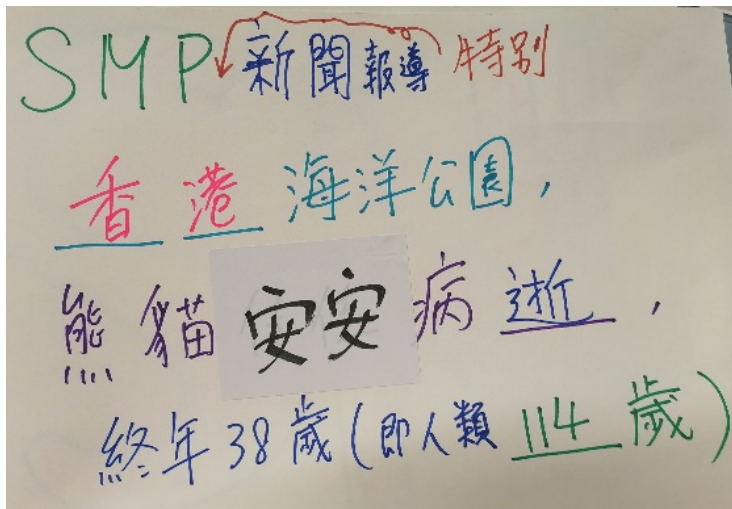 SMP 新聞報導 特別
香港海洋公園,
熊貓安安病逝,
終年38歲(即人類114歲)